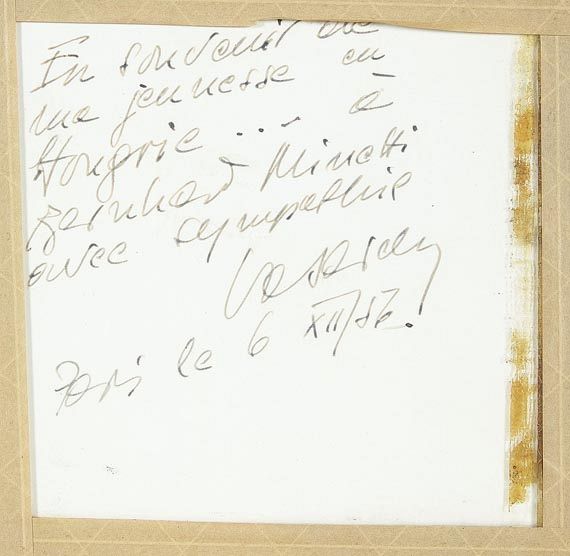 En souvenir de
ma jeunesse en
Hongrie ... à
Bernhard Minetti
avec sympathie
Vasarely
Paris le 6 XII/87.